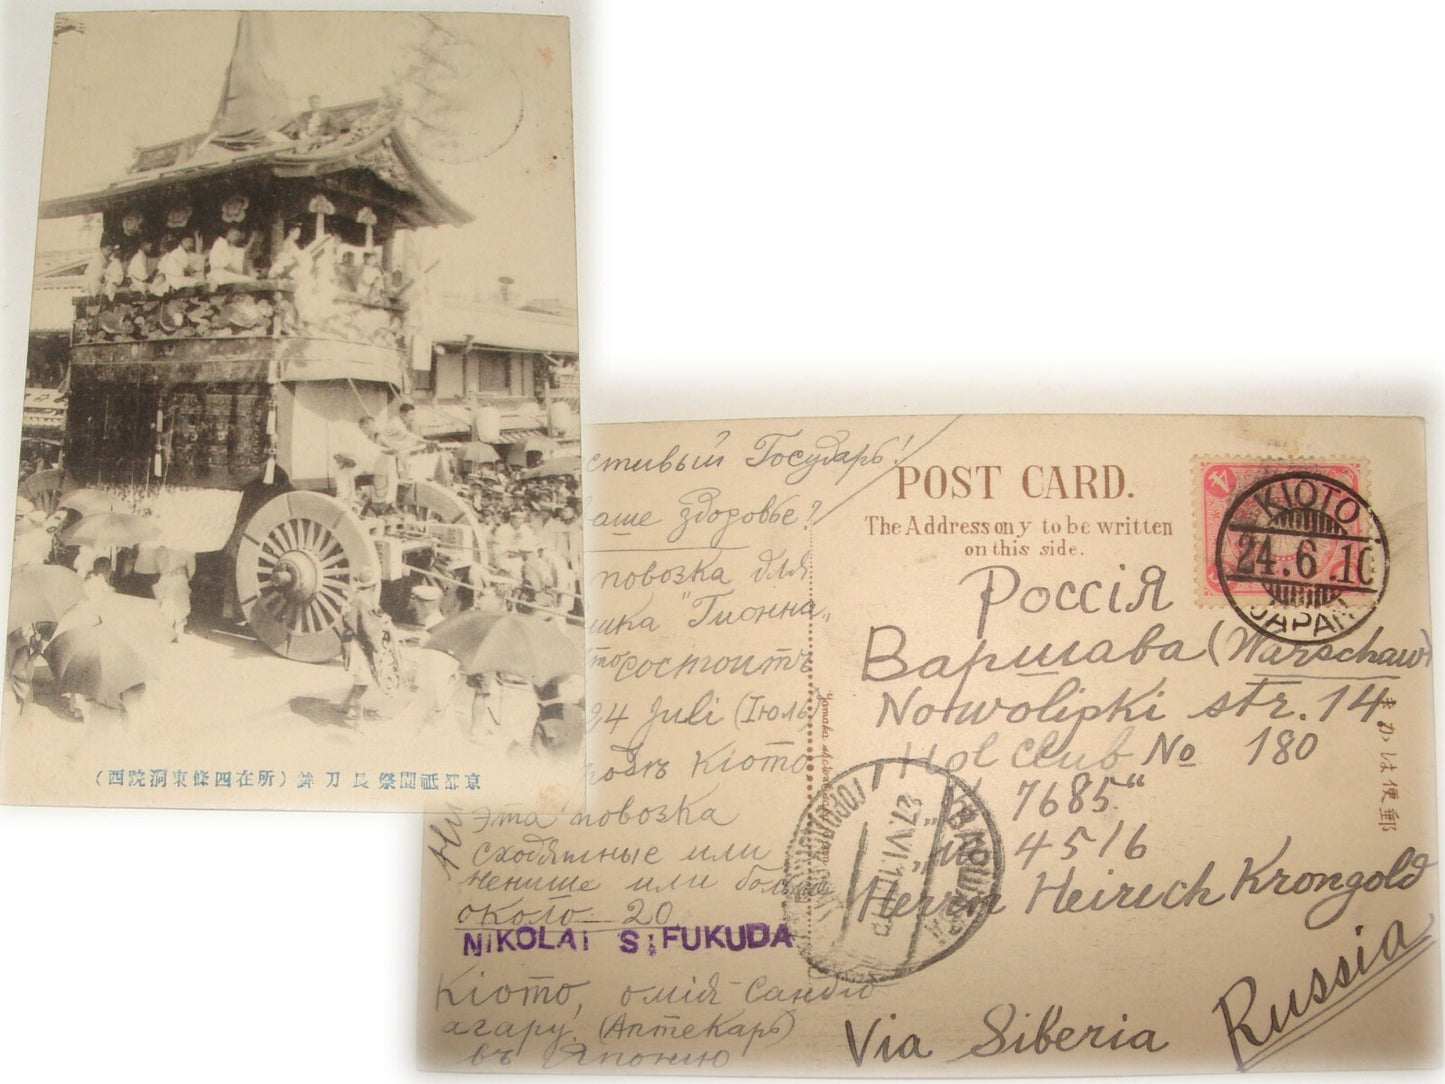 京都祇園祭長刀鉾(所在四條東洞院西)
стивый Государь!
аше здоровье?
повозка для
шка "Гионна„
состоитъ
24 Juli (Іюль)
Кіото
Эта повозка
сходятные или
ненише или больше
около 20
NIKOLAI S. FUKUDA
Кіото, омія-Санdiо
агару, (Аптекарь)
въ Японію
POST CARD.
The Address on y to be written
on this side.
KIOTO
24.6.10
JAPAN
4
Россія
Варшава (Warschaw)
Nowolipki str. 14
Hol Club № 180
7685."
4516
Herrn Heirich Krongold
Via Siberia
Russia
きかは便郵
27.VI.10